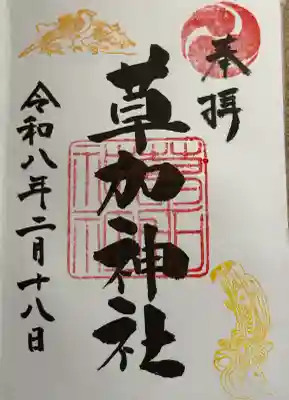 奉拝
草加神社
令和八年二月十八日